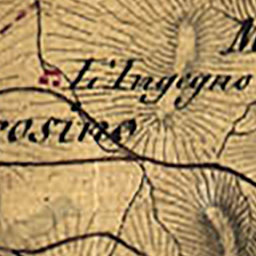 M
L'Ingegno
rosino